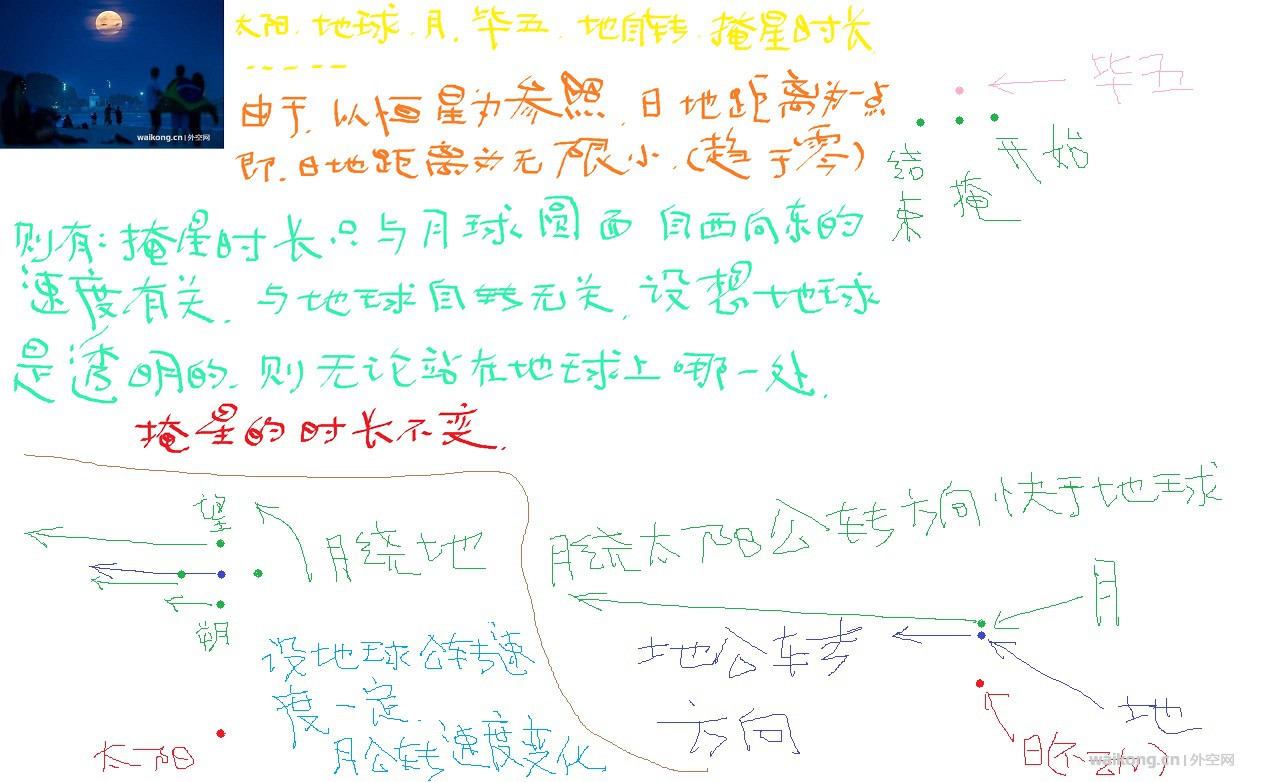 太阳.地球.月.毕五.地自转.掩星时长
waikong.cn | 外空网
由于.以恒星为参照.日地距离为一点
即.日地距离为无限小.(趋于零)
毕五
开始
掩
结束
则有:掩星时长只与月球圆面自西向东的
速度有关.与地球自转无关.设想地球
是透明的.则无论站在地球上哪一处.
掩星的时长不变.
望
月绕地
朔
设地球公转速
度一定.
月公转速度变化
太阳
月绕太阳公转方向快于地球
月
地公转
方向
地
waikong.cn | 外空网